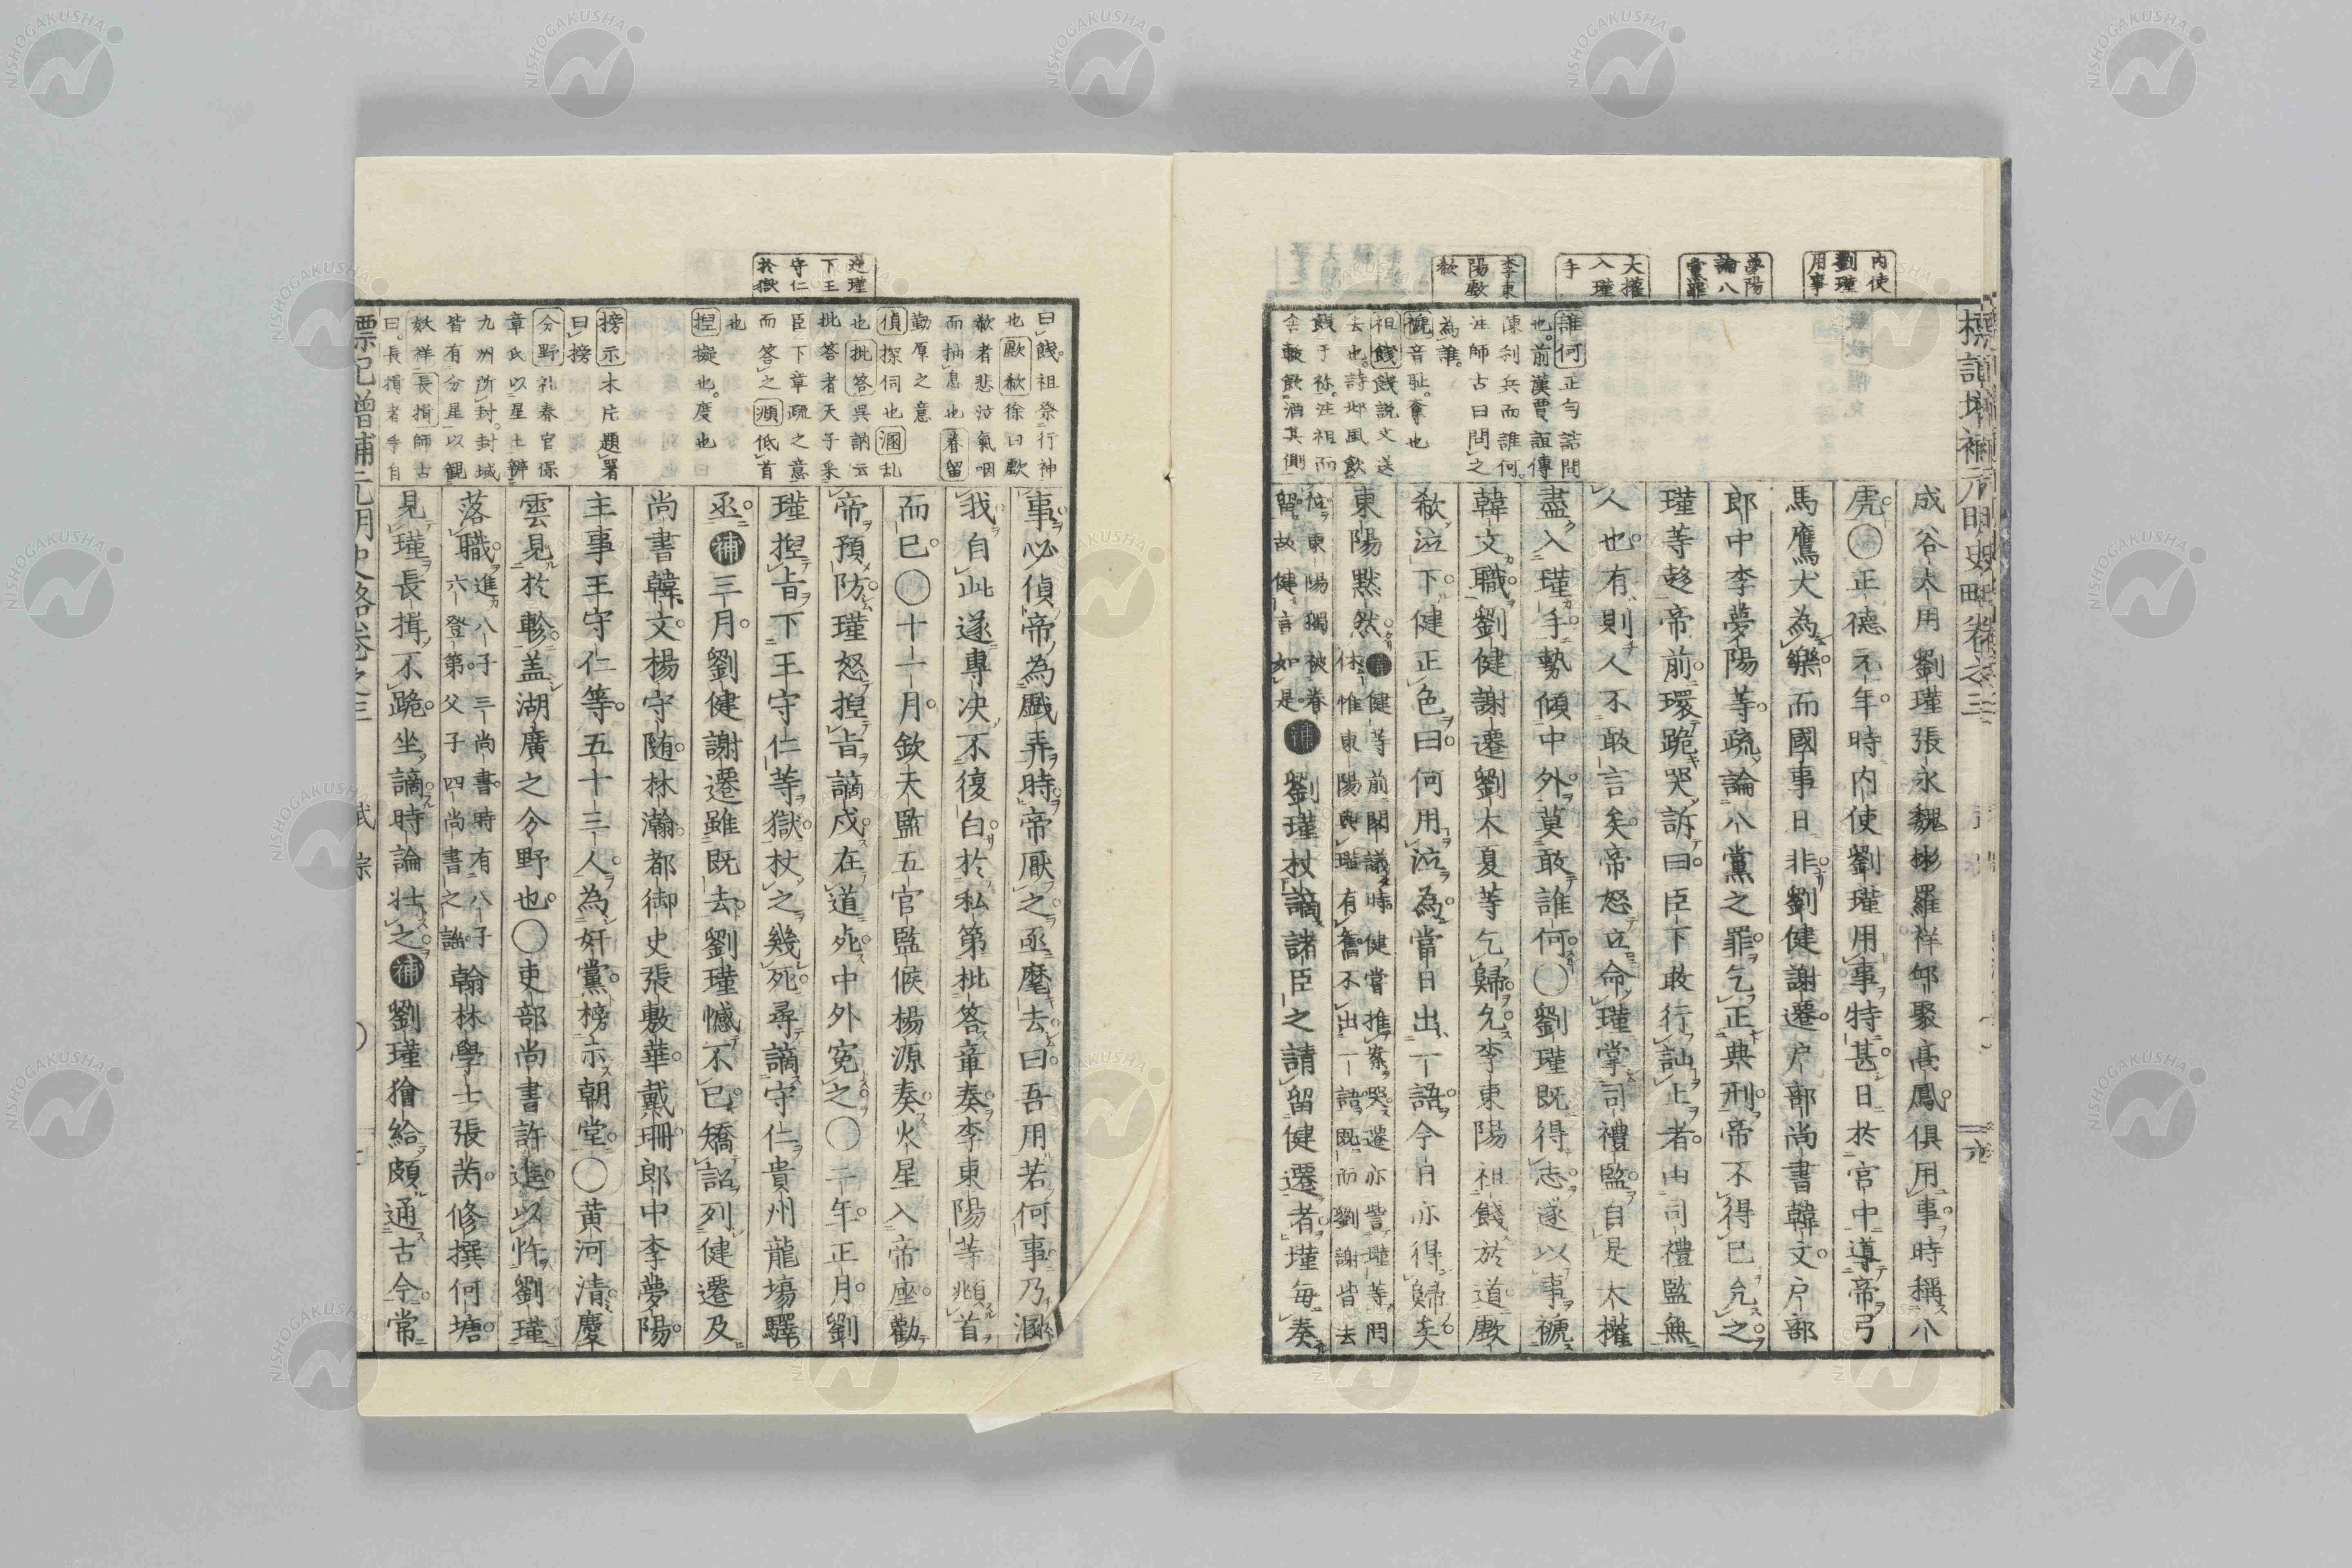 標記増補元明史略卷之三
內使
劉瑾
用事
夢陽
論八
黨罪
大權
入瑾
手
李東
陽歔
欷
誰何正勻詰問
也前漢賈誼傳
陳利兵而誰何
注師古曰問之
為誰
褫音恥奪也
祖餞餞說文送
去也詩邶風飲
餞于祢注祖而
舍軷飲酒其側
成谷大用劉瑾張永魏彬羅祥邱聚高鳳俱用事時稱八
虎〇正德元年時內使劉瑾用事特甚日於宮中導帝弓
馬鷹犬為樂而國事日非劉健謝遷戶部尚書韓文戶部
郎中李夢陽等疏論八黨之罪乞正典刑帝不得已允之
瑾等趁帝前環跪哭訴曰臣下敢行訕上者由司禮監無
人也有則人不敢言矣帝怒立命瑾掌司禮監自是大權
盡入瑾手勢傾中外莫敢誰何〇劉瑾既得志遂以事褫
韓文職劉健謝遷劉大夏等乞歸允李東陽祖餞於道歔
欷泣下健正色曰何用泣為當日出一語今日亦得歸矣
東陽默然補健等前閣議時健嘗推案哭遷亦訾瑾等罔
休惟東陽與瑾有舊不出一語既而劉謝皆去
位東陽獨被眷
留故健言如是補劉瑾杖謫諸臣之請留健遷者瑾每奏
逆瑾
下王
守仁
於獄
曰餞祖祭行神
也歔欷徐曰歔
欷者悲泣氣咽
而抽息也眷留
勤厚之意
偵探伺也溷乱
也批答吳訥云
批答者天子采
臣下章疏之意
而答之頫低首
也
揑擬也度也
榜示木片題署
曰榜
分野礼春官保
章氏以星土辨
九州所封封域
皆有分星以觀
妖祥長揖師古
曰長揖者手自
事必偵帝為戲弄時帝厭之亟麾去曰吾用若何事乃溷
我自此遂專決不復白於私第批答章奏李東陽等頫首
而已〇十一月欽天監五官監候楊源奏火星入帝座勸
帝預防瑾怒揑旨謫戍在道死中外冤之〇二年正月劉
瑾揑旨下王守仁等獄杖之幾死尋謫守仁貴州龍場驛
丞補三月劉健謝遷雖既去劉瑾憾不已矯詔列健遷及
尚書韓文楊守隨林瀚都御史張敷華戴珊郎中李夢陽
主事王守仁等五十三人為奸黨榜示朝堂〇黃河清慶
雲見於軫盖湖廣之分野也〇吏部尚書許進以忤劉瑾
落職進八子三尚書時有八子
六登第父子四尚書之謠翰林學士張芮修撰何塘
見瑾長揖不跪坐謫時論壯之補劉瑾獪給頗通古今常
標記增補元明史略卷之三 武宗